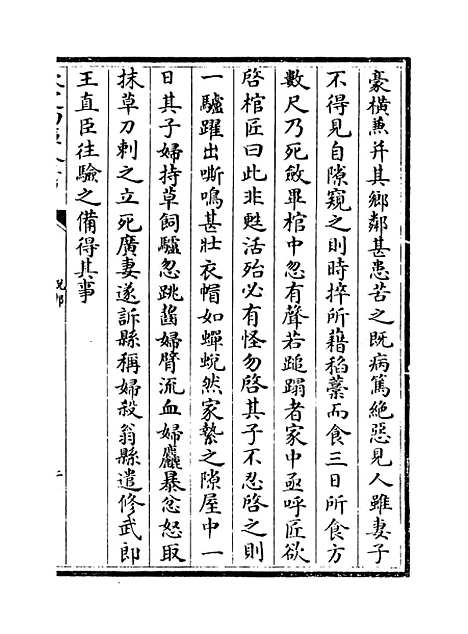 豪橫兼并其鄉鄰甚患苦之既病篤絕惡見人雖妻子
不得見自隙窺之則時捽所藉稻藁而食三日所食方
數尺乃死斂畢棺中忽有聲若踶蹋者家中亟呼匠欲
啓棺匠曰此非甦活殆必有怪勿啓其子不忍啓之則
一驢躍出嘶鳴甚壯衣帽如蟬蛻然家縶之隙屋中一
日其子婦持草飼驢忽跳齧婦臂流血婦麤暴忿怒取
抹草刀刺之立死廣妻遂訴縣稱婦殺翁縣遣修武郎
王直臣往驗之備得其事
説郛
二